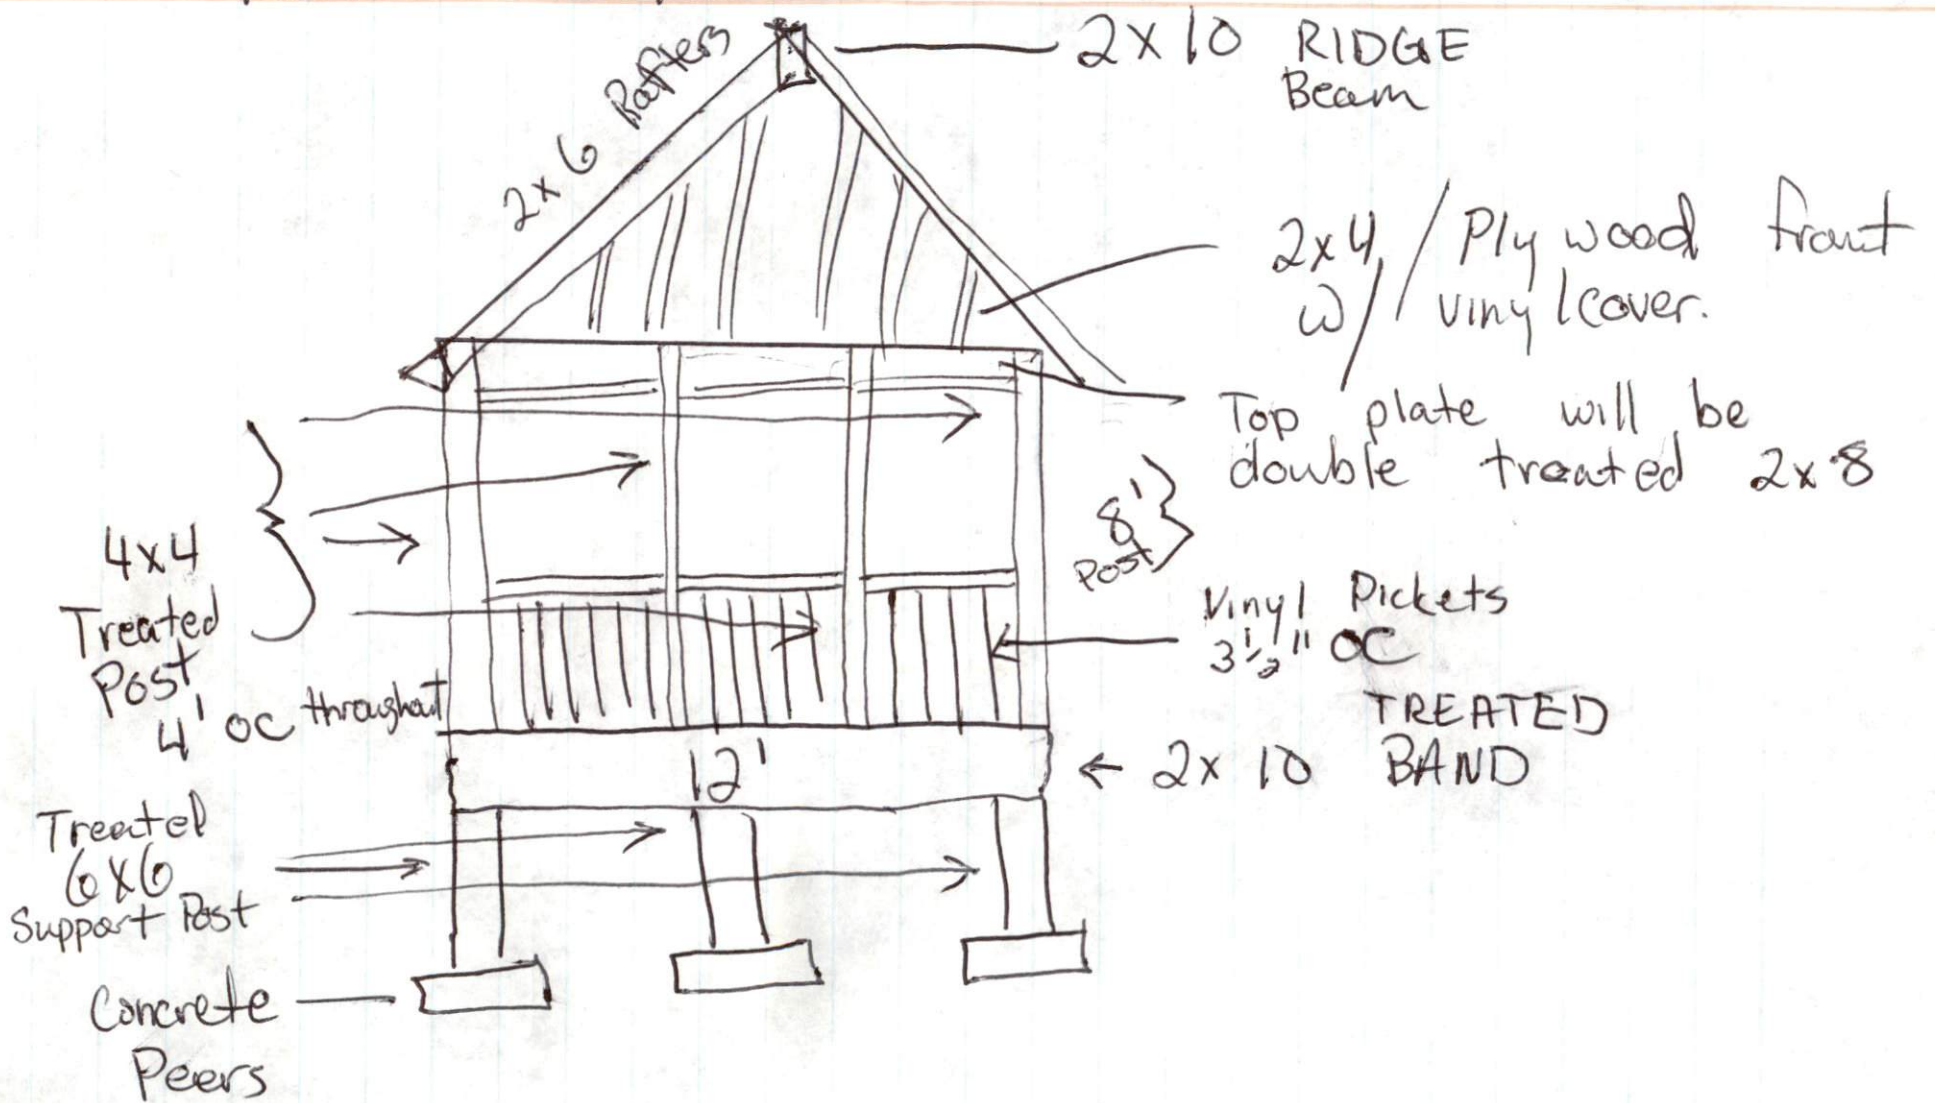 2x10 RIDGE
Beam
2x6 Rafters
2x4 / Plywood front
w/ vinyl cover.
Top plate will be
double treated 2x8
8'
Post
4x4
Treated
Post
4' OC throughout
Vinyl Pickets
3 1/2" OC
TREATED
← 2x10 BAND
12'
Treatel
6x6
Support Post
Concrete
Peers